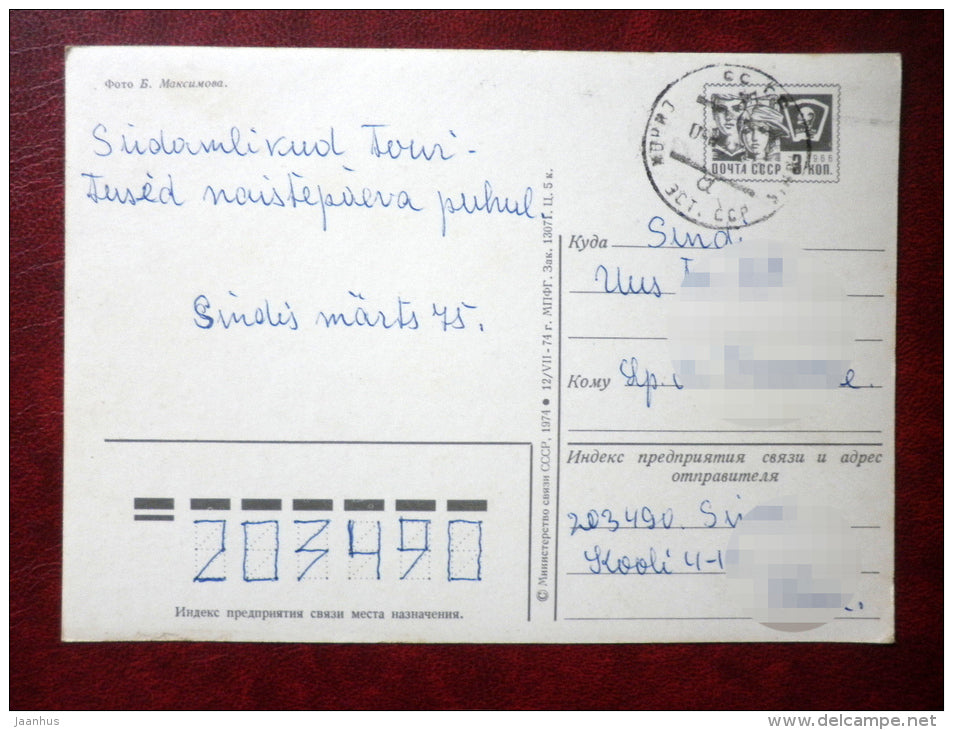 Фото Б. Максимова.
Südamlikud Tervi-
tused naistepäeva puhul.
Sindis märts 75.
ПОЧТА СССР 3 КОП.
1966
ЭСТ. ССР
Куда Sindi
Uus
Кому
Индекс предприятия связи и адрес
отправителя
203490. Si
Kooli 4-1
203490
Индекс предприятия связи места назначения.
© Министерство связи СССР, 1974 ● 12/VII-74 г. МПФГ. Зак. 1307г. Ц. 5 к.
jaanhus
www.delcampe.net